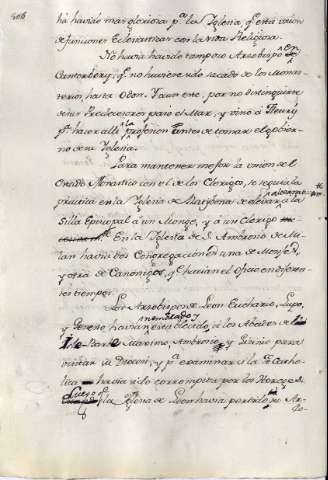 há havido mas gloriosa pª la Yglesia, qᵉ esta union
de funciones Eclesiasticas con la vida Religiosa.
No havia havido tampoco Arzobispo en
Cantorbery, qᵉ no huviese sido sacado de los Monas-
terios, hasta Odon. Y aun este, por no distinguirse
de sus Predecesores pasó el Mar, y vino à Fleury
pª hacer alli la profesion antes de tomar el govier-
no de su Yglesia.
Para mantener mejor la union de el
Orden Monastico con el de los Clerigos, se seguia la
practica en la Yglesia de de elevar à la
Silla Episcopal à un Monge, y à un Clerigo
En la Yglesia de S. Ambrosio de Mi-
lan havia dos Congregaciones una de Monjes,
y otra de Canonigos, y hacian el Oficio en diferen-
tes tiempos.
Los Arzobispos de Leon Eucherio, Lupo,
y Genesio havian establecido, à los Abades de la
Isla Barbe Maximo, Ambrosio, y para
visitar su Diocesi, y pª examinar si la Fe Catho-
lica havia sido corrompida por los Hereges.
Luego qᵉ la Yglesia de Leon havia perdido su Ar-